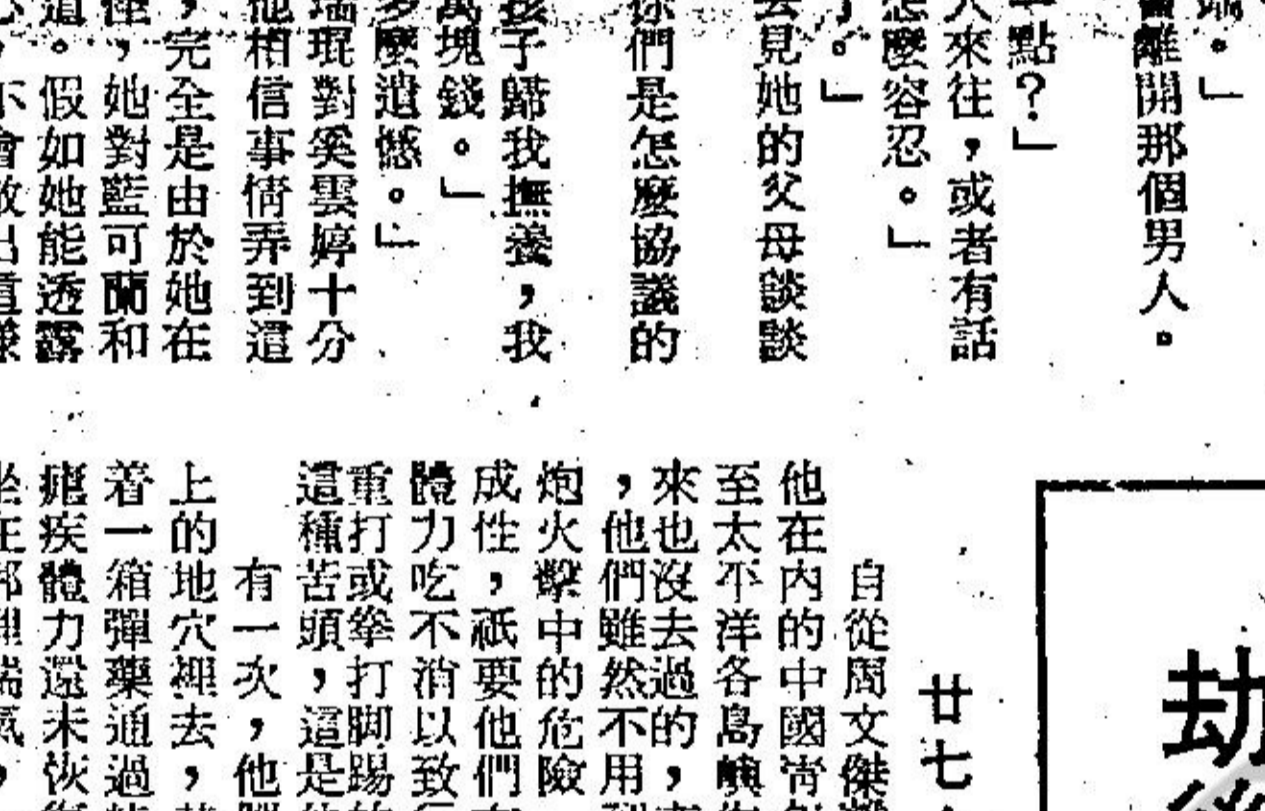 。」
離開那個男人。
點？」
人來往，或者有話
怎麼容忍。」
了。」
去見她的父母談談
你們是怎麼協議的
孩子歸我撫養，我
萬塊錢。」
多麼遺憾。」
瑞琨對奚雲婷十分
他相信事情弄到這
，完全是由於她在
，她對藍可蘭和
道。假如她能透露
，不會做出這樣
劫
廿七
自從周文傑
他在內的中國
至太平洋各島嶼
來也沒去過的，
，他們雖然不用
炮火擊中的危險
成性，祇要他們
體力吃不消以致
重打或拳打脚踢
這種苦頭，這是
有一次，他
上的地穴裡去，
着一箱彈藥通過
瘧疾體力還未恢
坐在那裡喘氣，